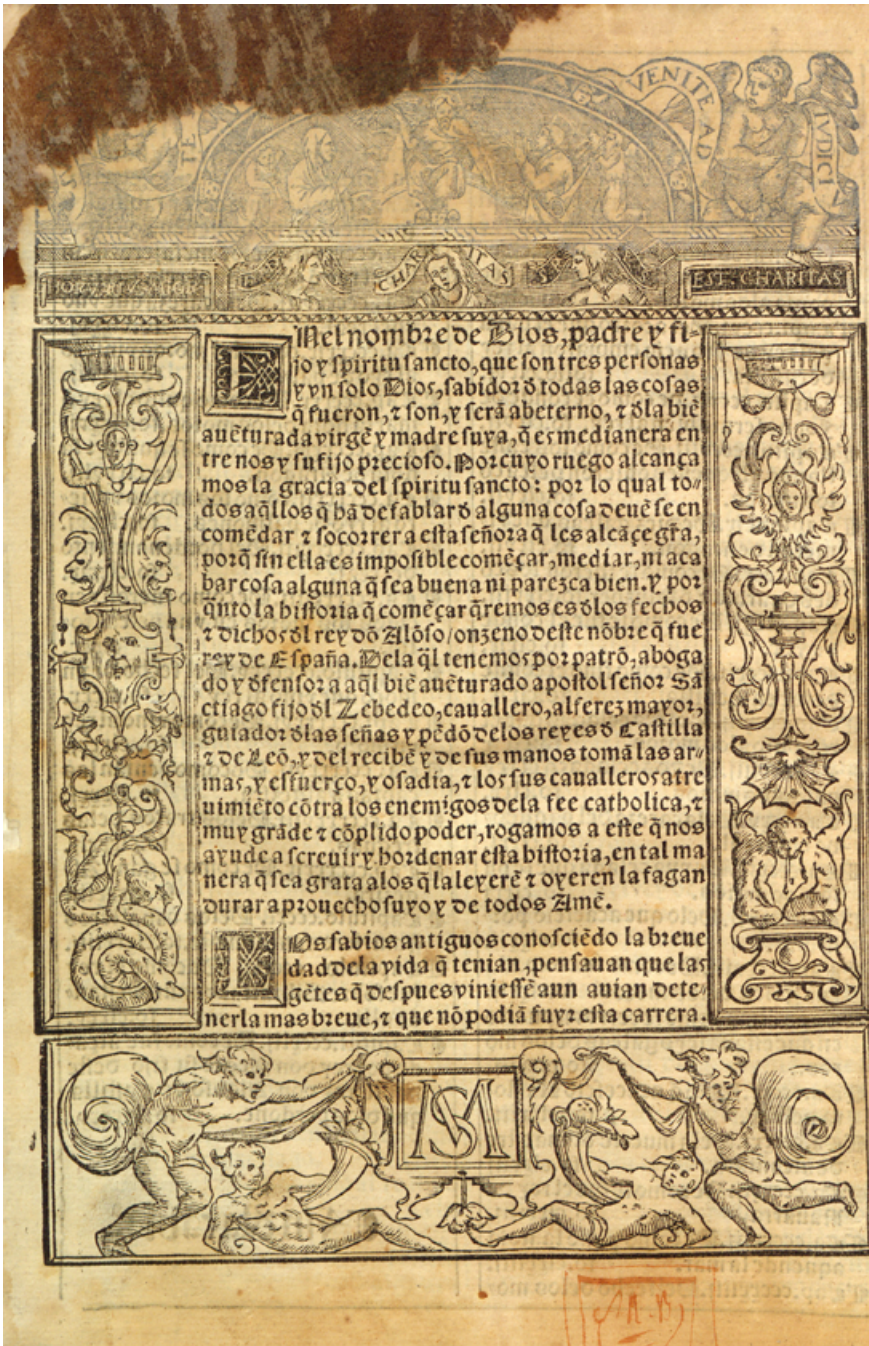 VENITE AD
IVDICI
TE
CHARITAS
EST. CHARITAS
ENel nombre de Dios, padre y fi-
jo y spiritu sancto, que son tres personas
y vn solo Dios, sabidor đ todas las cosas
q̃ fueron, ⁊ son, y serã abeterno, ⁊ đla biẽ
auẽturada virgẽ y madre suya, q̃ es medianera en
tre nos y su fijo precioso. Por cuyo ruego alcança
mos la gracia del spiritu sancto: por lo qual to-
dos aq̃llos q̃ hã de fablar đ alguna cosa deuẽ se en
comẽdar ⁊ socorrer a esta señora q̃ les alcãçe gr̃a,
porq̃ sin ella es imposible comẽçar, mediar, ni aca
bar cosa alguna q̃ sea buena ni parezca bien. Y por
q̃nto la historia q̃ comẽçar q̃remos es đlos fechos
⁊ dichos đl rey dõ Alõso / onzeno deste nõbre q̃ fue
rey de España. Dela q̃l tenemos por patrõ, aboga
do y đfensor a aq̃l biẽ auẽturado apostol señor Sã
ctiago fijo đl Zebedeo, cauallero, alferez mayor,
guiador đlas señas y pẽdõ delos reyes đ Castilla
⁊ de Leõ, y del recibẽ y de sus manos tomã las ar-
mas, y esfuerço, y osadia, ⁊ los sus caualleros atre
uimiẽto cõtra los enemigos dela fee catholica, ⁊
muy grãde ⁊ cõplido poder, rogamos a este q̃ nos
ayude a screuir y hordenar esta historia, en tal ma
nera q̃ sea grata alos q̃ la leyerẽ ⁊ oyeren la fagan
durar a prouecho suyo y de todos Amẽ.
LOs sabios antiguos conosciẽdo la breue
dad dela vida q̃ tenian, pensauan que las
gẽtes q̃ despues viniessẽ aun auian de te-
nerla mas breue, ⁊ que nõ podiã fuyr esta carrera.
SM